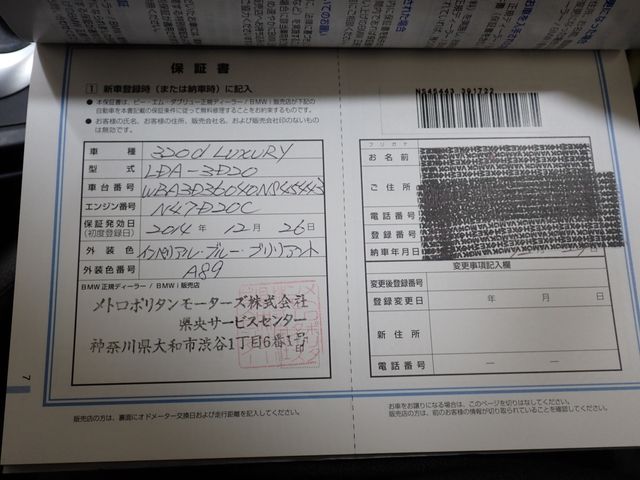 保証書
1 新車登録時(または納車時)に記入
● 本保証書は、ビー・エム・ダブリュー正規ディーラー/BMW i 販売店が下記の
自動車を本書記載の保証条件に従って無料修理することをお約束するものです。
● お客様の氏名、お客様の住所、販売会社名、および販売会社印のないもの
は無効です。
車種 320d LUXURY
型式 LDA-3D20
車台番号 WBA3D36040NS45443
エンジン番号 N47D20C
保証発効日 2014年12月26日
(初度登録日)
外装色 インペリアル・ブルー・ブリリアント
外装色番号 A89
BMW正規ディーラー/BMW i 販売店
メトロポリタンモーターズ株式会社
県央サービスセンター
神奈川県大和市渋谷1丁目6番1号
7
販売店の方は、裏面にオドメーター交換日および走行距離を記入してください。
フリガナ
お名前
ご住所
電話番号
登録番号
納車年月日
変更事項記入欄
変更後登録番号
登録変更日 年 月 日
新住所
電話番号 ー ー
お車をお譲りになる場合は、このページを切りはなしてください。
販売店の方は、前のお客様の情報が切り取られていることを確認してください。